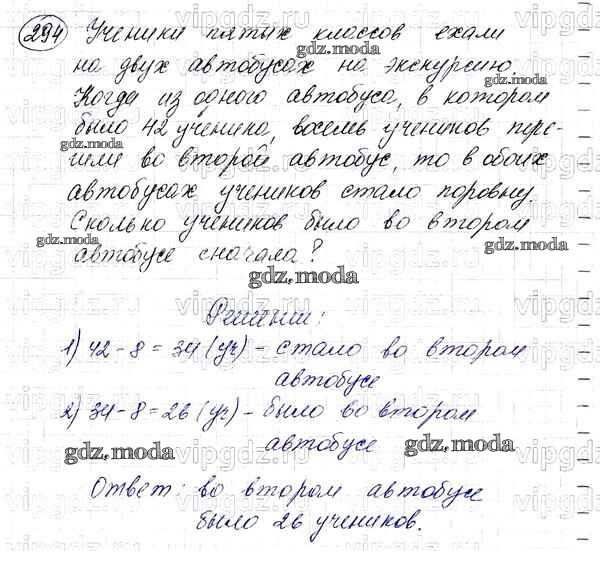 294 Ученики пятых классов ехали
на двух автобусах на экскурсию.
Когда из одного автобуса, в котором
было 42 ученика, восемь учеников пере-
шли во второй автобус, то в обоих
автобусах учеников стало поровну.
Сколько учеников было во втором
автобусе сначала?
Решение:
1) 42 - 8 = 34 (уч) - стало во втором
автобусе
2) 34 - 8 = 26 (уч) - было во втором
автобусе
Ответ: во втором автобусе
было 26 учеников.
gdz.moda
gdz.moda
gdz.moda
gdz.moda
gdz.moda
gdz.moda
gdz.moda
gdz.moda
vipgdz.ru